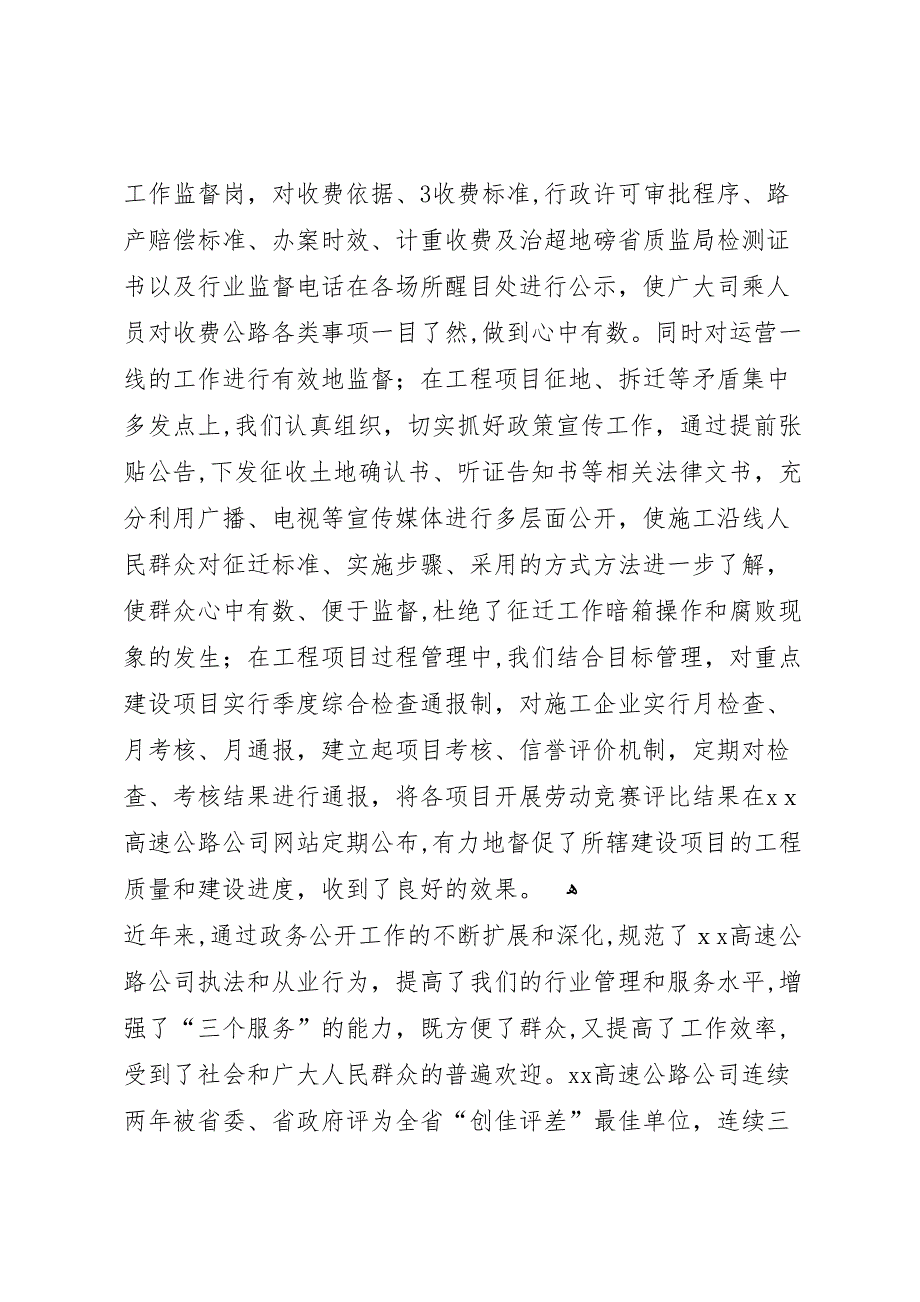 工作监督岗，对收费依据、3收费标准,行政许可审批程序、路
产赔偿标准、办案时效、计重收费及治超地磅省质监局检测证
书以及行业监督电话在各场所醒目处进行公示，使广大司乘人
员对收费公路各类事项一目了然,做到心中有数。同时对运营一
线的工作进行有效地监督；在工程项目征地、拆迁等矛盾集中
多发点上,我们认真组织，切实抓好政策宣传工作，通过提前张
贴公告,下发征收土地确认书、听证告知书等相关法律文书，充
分利用广播、电视等宣传媒体进行多层面公开，使施工沿线人
民群众对征迁标准、实施步骤、采用的方式方法进一步了解，
使群众心中有数、便于监督,杜绝了征迁工作暗箱操作和腐败现
象的发生；在工程项目过程管理中,我们结合目标管理，对重点
建设项目实行季度综合检查通报制，对施工企业实行月检查、
月考核、月通报，建立起项目考核、信誉评价机制，定期对检
查、考核结果进行通报，将各项目开展劳动竞赛评比结果在xx
高速公路公司网站定期公布,有力地督促了所辖建设项目的工程
质量和建设进度，收到了良好的效果。 ﻫ
近年来,通过政务公开工作的不断扩展和深化,规范了 xx高速公
路公司执法和从业行为，提高了我们的行业管理和服务水平,增
强了“三个服务”的能力，既方便了群众,又提高了工作效率,
受到了社会和广大人民群众的普遍欢迎。xx高速公路公司连续
两年被省委、省政府评为全省“创佳评差”最佳单位，连续三